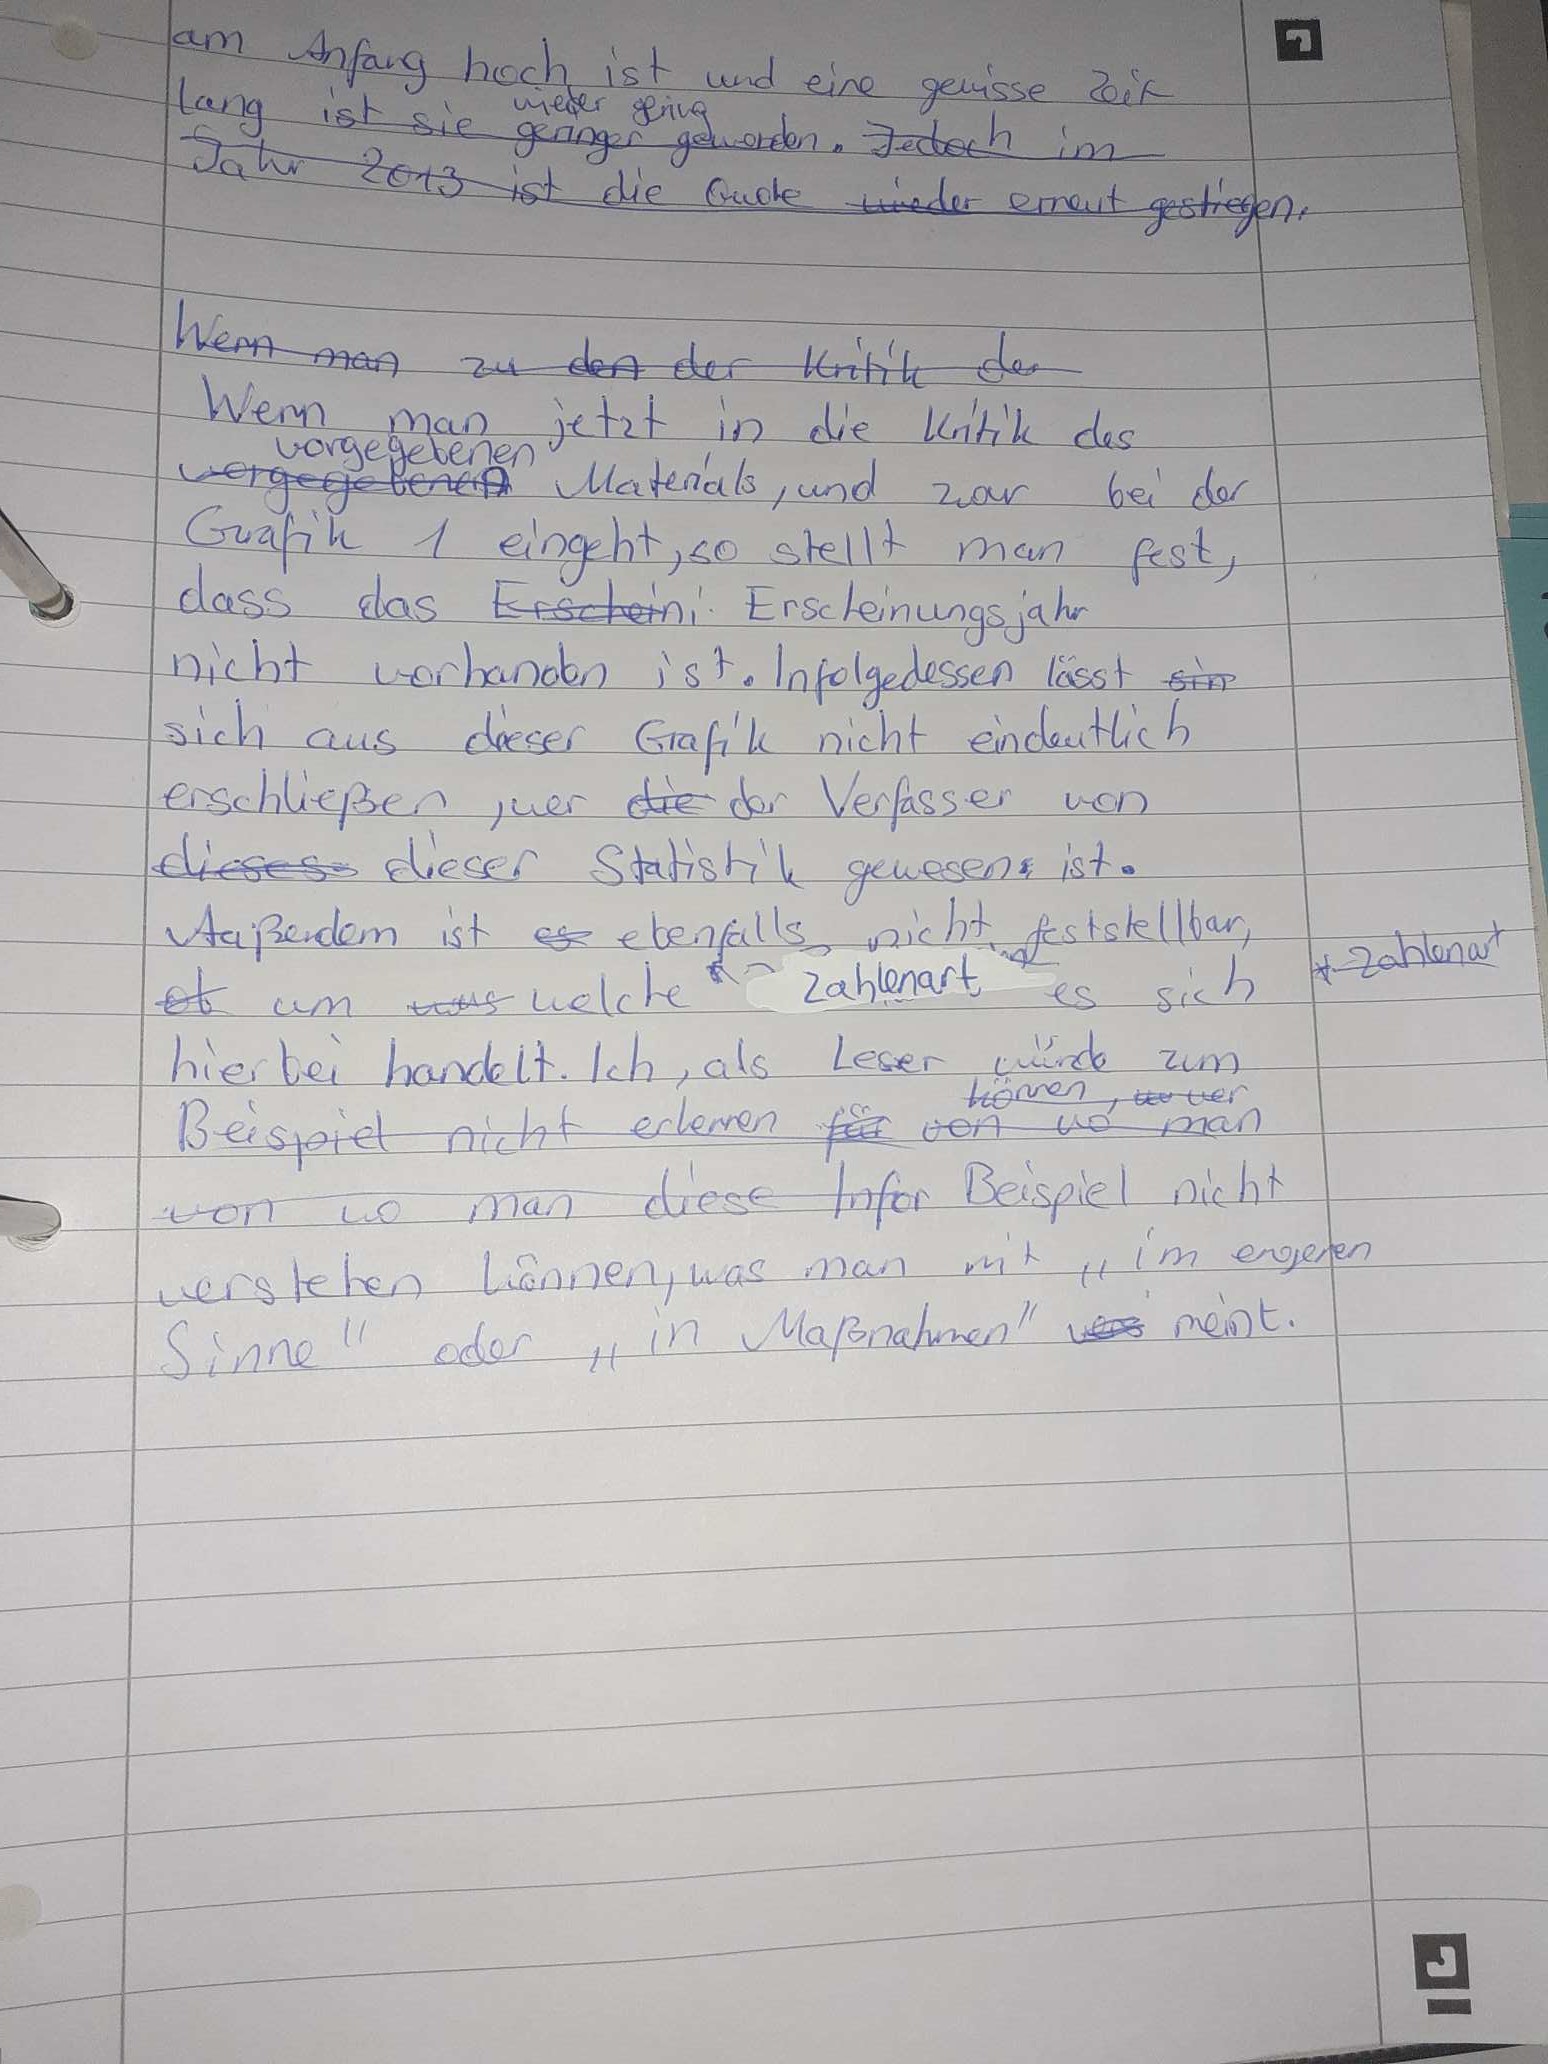 am Anfang hoch ist und eine gewisse Zeit
wieder gering
lang ist sie geringer geworden. Jedoch im
Jahr 2013 ist die Quote wieder erneut gestiegen.
Wenn man zu den der Kritik der
Wenn man jetzt in die Kritik des
vorgegebenen
vorgegebenen Materials, und zwar bei der
Grafik 1 eingeht, so stellt man fest,
dass das Erscheini Erscheinungsjahr
nicht vorhanden ist. Infolgedessen lässt sin
sich aus dieser Grafik nicht eindeutlich
erschließen, wer die der Verfasser von
dieses dieser Statistik gewesen ist.
Außerdem ist es ebenfalls nicht feststellbar,
ob um was welche * Zahlenart es sich
* Zahlenart
hierbei handelt. Ich, als Leser würde zum
können, wer
Beispiel nicht erkennen für von wo man
von wo man diese Infor Beispiel nicht
verstehen können, was man mit „im engeren
Sinne" oder „in Maßnahmen" meint.